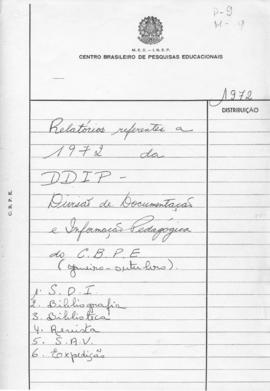 P-9
M-9
M.E.C. - I.N.E.P.
CENTRO BRASILEIRO DE PESQUISAS EDUCACIONAIS
1972
DISTRIBUIÇÃO
Relatórios referentes a
1972 da
DDIP -
Divisão de Documentação
e Informação Pedagógica
do C.B.P.E.
(janeiro-outubro).
1. S.D.I.
2. Bibliografia
3. Biblioteca
4. Revista
5. S.A.V.
6. Expedição
C.B.P.E.